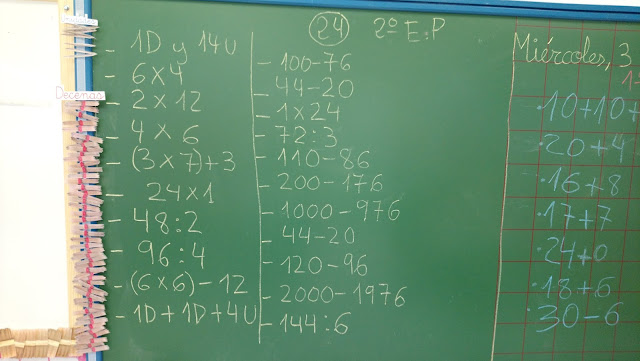 24 2º E.P
Decenas
- 1D y 14U
- 6x4
- 2x12
- 4x6
- (3x7)+3
- 24x1
- 48:2
- 96:4
- (6x6)-12
- 1D+1D+4U
- 100-76
- 44-20
- 1x24
- 72:3
- 110-86
- 200-176
- 1000-976
- 44-20
- 120-96
- 2000-1976
- 144:6
Miércoles, 3
1
·10+10+
·20+4
·16+8
·17+7
·24+0
·18+6
·30-6